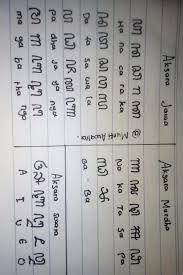 Aksara Jawa
ꦲ ꦤ ꦕ ꦫ ꦏ
Ha na ca ra ka
ꦢ ꦠ ꦱ ꦮ ꦭ
Da ta sa wa la
ꦥ ꦝ ꦗ ꦪ ꦚ
pa dha ja ya nya
ꦩ ꦒ ꦧ ꦛ ꦔ
ma ga ba tha nga
Aksara Murdha
ꦟ ꦑ ꦡ ꦯ ꦦ
Na Ka Ta Sa Pa
ꦓ ꦨ
Ga Ba
Aksara Swara
ꦄ ꦆ ꦈ ꦌ ꦎ
A I U E O